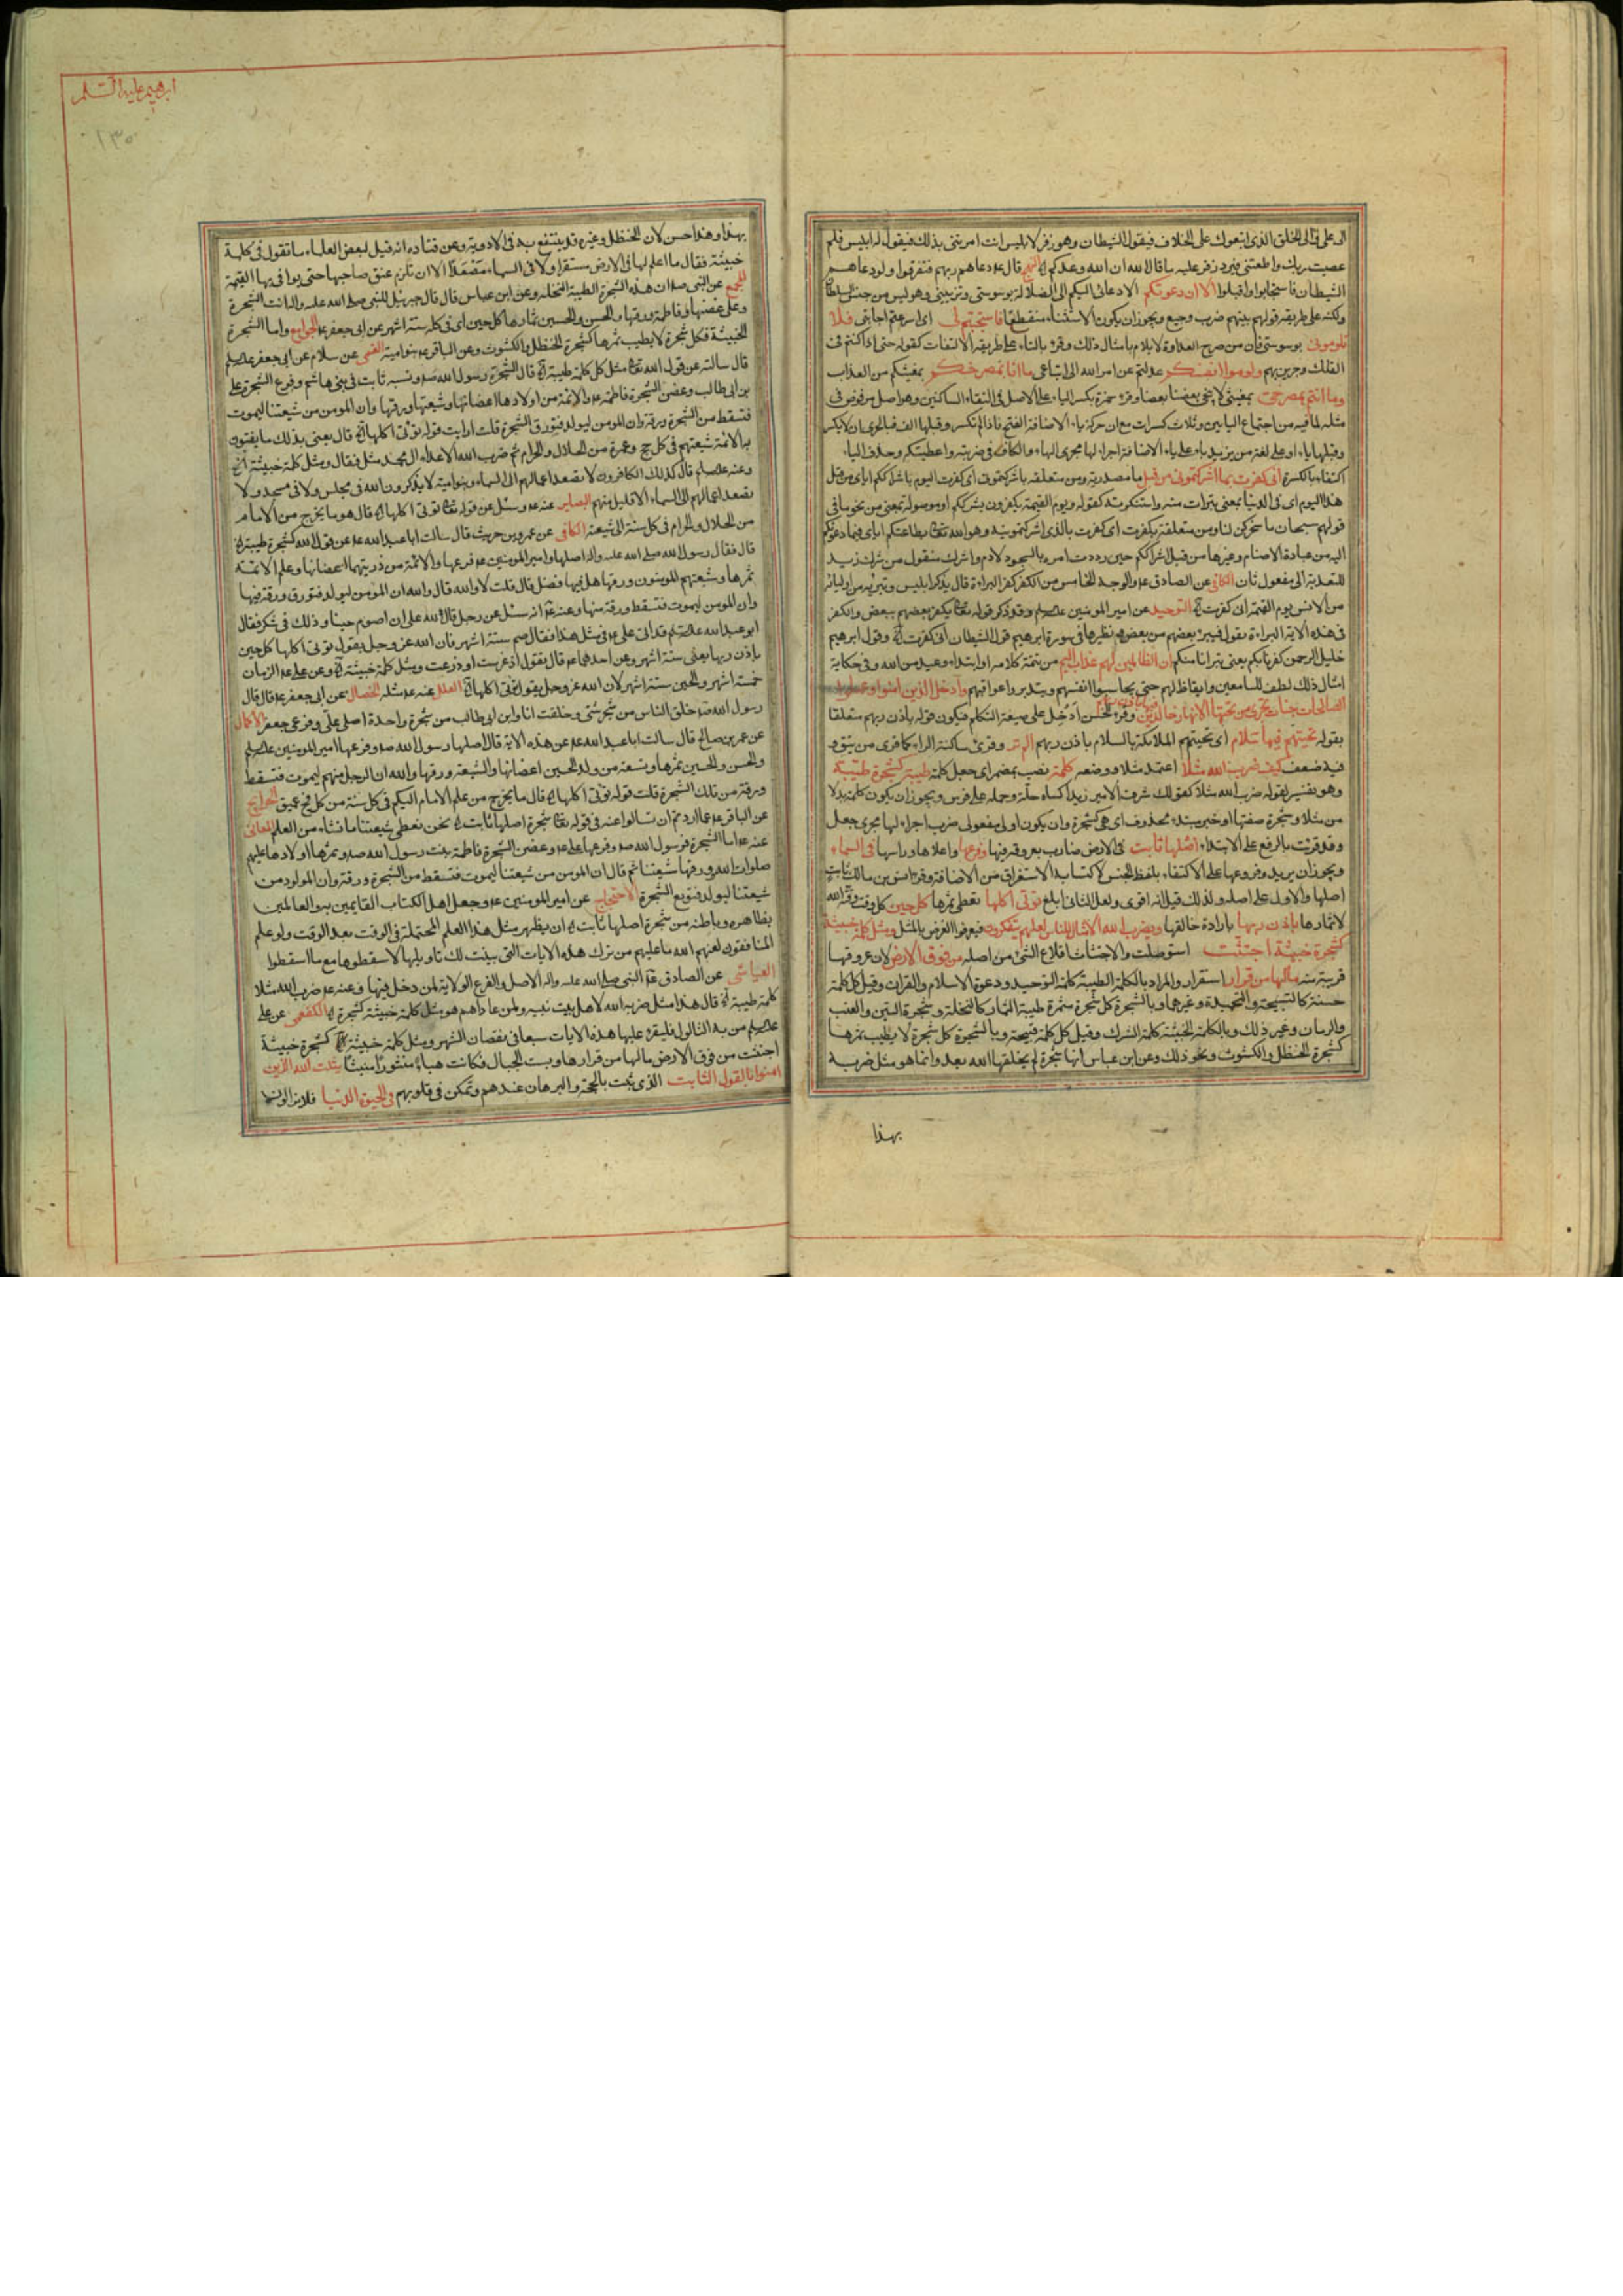 الى على قتال الخلق الذى اتبعوك على الخلاف فيقول الشيطان وهو زفر لابليس انت امرتنى بذلك فيقول له ابليس فلم
عصيت ربك واطعتنى فيرد زفر عليه ما قال الله ان الله وعدكم
الشيطان فاستجابوا واقبلوا الا ان دعوتكم الا دعائى اليكم الى الضلالة بوسوستى وتزيينى وهو ليس من جنس السلطان
ولكنه على طريقة قولهم بينهم ضرب وجيع ويجوز ان يكون الاستثناء منقطعا فاستجبتم لى اى اسرعتم اجابتى فلا
تلومونى بوسوستى فان من صرح العداوة لا يلام بامثال ذلك وقرء بالياء على طريقة الالتفات كقوله حتى اذا كنتم فى
الفلك وجرين بهم ولوموا انفسكم عدلتم عن امر الله الى اتباعى ما انا بمصرخكم بمغيثكم من العذاب
وما انتم بمصرخى بمغيثى لا ينجى بعضنا بعضا وقرء حمزة بكسر الياء على الاصل فى التقاء الساكنين وهو اصل مرفوض فى
مثله لما فيه من اجتماع اليائين وثلاث كسرات مع ان حركة ياء الاضافة الفتح فاذا لم تكسر وقبلها الف فبالحرى ان لا يكسر
وقبلها ياء او على لغة من يزيد ياء على ياء الاضافة اجراء لها مجرى الهاء والكاف فى ضربته واعطيتكه وحذف الياء
اكتفاء بالكسرة انى كفرت بما اشركتمونى من قبل ما مصدرية ومن متعلقة باشركتمونى اى كفرت اليوم باشراككم اياى من قبل
هذا اليوم اى فى الدنيا بمعنى تبرات منه واستنكرته كقوله ويوم القيمة يكفرون بشرككم او موصولة بمعنى من نحو ما فى
قولهم سبحان ما سخركن لنا ومن متعلقة بكفرت اى كفرت بالذى اشركتمونيه وهو الله تعالى بطاعتكم اياى فيما دعوتكم
اليه من عبادة الاصنام وغيرها من قبل اشراككم حين رددت امره بالسجود لادم واشرك منقول من شرك زيد
للتعدية الى مفعول ثان الكافى عن الصادق ع والوجه الخامس من الكفر كفر البراءة قال يذكر ابليس وتبريه من اوليائه
من الانس يوم القيمة انى كفرت الخ التوحيد عن امير المومنين
فى هذه الاية البراءة يقول فيبرء بعضهم من بعض ونظيرها فى سورة ابرهيم قول الشيطان انى كفرت الخ وقول ابرهيم
خليل الرحمن كفرنا بكم يعنى تبرانا منكم ان الظالمين لهم عذاب اليم من تتمة كلامه او ابتداء وعيد من الله وفى حكاية
امثال ذلك لطف للسامعين وايقاظ لهم حتى يحاسبوا انفسهم ويتدبروا عواقبهم وادخل الذين امنوا وعملوا
الصالحات جنات تجرى من تحتها الانهار خالدين وقرء الحسن ادخل على صيغة التكلم فيكون قوله باذن ربهم متعلقا
بقوله تحيتهم فيها سلام اى تحييهم الملائكة بالسلام باذن ربهم الم تر وقرئ ساكنة الراء كما قرئ من يتق و
فيه ضعف كيف ضرب الله مثلا اعتمد مثلا ووضعه كلمة نصب بمضمر اى جعل كلمة طيبة كشجرة طيبة
وهو تفسير لقوله ضرب الله مثلا كقولك شرف الامير زيدا كساه حلة وحمله على فرس ويجوز ان يكون كلمة بدلا
من مثلا وشجرة صفتها او خبر مبتداء محذوف اى هى كشجرة وان يكون اول مفعولى ضرب اجراء لها مجرى جعل
وقد قرئت بالرفع على الابتداء اصلها ثابت فى الارض ضارب بعروقه فيها وفرعها واعلاها وراسها فى السماء
ويجوز ان يريد وفروعها على الاكتفاء بلفظ الجنس لاكتسابه الاستغراق من الاضافة وقرء انس بن مالك ثابت
اصلها والاول على اصله ولذلك قيل انه اقوى ولعل الثانى ابلغ توتى اكلها تعطى ثمرها كل حين كل وقت وقته الله
لاثمارها باذن ربها بارادة خالقها ويضرب الله الامثال للناس لعلهم يتفكرون فيعرفوا الغرض بالمثل ومثل كلمة خبيثة
كشجرة خبيثة اجتثت استوصلت والاجتثاث اقلاع الشئ من اصله من فوق الارض لان عروقها
قريبة منه ما لها من قرار استقرار والمراد بالكلمة الطيبة كلمة التوحيد ودعوة الاسلام والقران وقيل كل كلمة
حسنة كالتسبيحة والتحميدة وغيرهما وبالشجرة كل شجرة مثمرة طيبة الثمار كالنخلة وشجرة التين والعنب
والرمان وغير ذلك وبالكلمة الخبيثة كلمة الشرك وقيل كل كلمة قبيحة وبالشجرة كل شجرة لا يطيب ثمرها
كشجرة الحنظل والكشوث ونحو ذلك وعن ابن عباس انها شجرة لم يخلقها الله بعد وانما هو مثل ضربه
بهذا
ابرهيم عليه السلم
١٣٠
بهذا وهذا حسن لان الحنظل وغيره قد ينتفع به فى الادوية وعن قتاده انه قيل لبعض العلماء ما تقول فى كلمة
خبيثة فقال ما اعلم لها فى الارض مستقرا ولا فى السماء مصعدا الا ان تلزم عنق صاحبها حتى يوافى بها القيمة
المجمع عن النبى ص ان هذه الشجرة الطيبة النخلة وعن ابن عباس قال قال جبرئيل للنبى صلى الله عليه واله انت الشجرة
وعلى غصنها وفاطمة ورقها والحسن والحسين ثمارها كل حين اى فى كل ستة اشهر عن ابى جعفر ع الجوامع واما الشجرة
الخبيثة فكل شجرة لا يطيب ثمرها كشجرة الحنظل والكشوث وعن الباقر ع بنو امية القمى عن سلام عن ابى جعفر
قال سالته عن قول الله تعالى مثل كلمة طيبة الخ قال الشجرة رسول الله ص ونسبه ثابت فى بنى هاشم وفرع الشجرة على
بن ابى طالب وغصن الشجرة فاطمة ع والائمة من اولادها اغصانها وشيعتها ورقها وان المومن من شيعتنا ليموت
فتسقط من الشجرة ورقة وان المومن ليولد فتورق الشجرة قلت ارايت قوله توتى اكلها الخ قال يعنى بذلك ما يفتون
به الائمة شيعتهم فى كل حج وعمرة من الحلال والحرام ثم ضرب الله لاعداء ال محمد مثلا فقال ومثل كلمة خبيثة الخ
وعنه قال كذلك الكافرون لا تصعد اعمالهم الى السماء وبنو امية لا يذكرون الله فى مجلس ولا فى مسجد ولا
تصعد اعمالهم الى السماء الا قليل منهم البصاير عنه ع وسئل عن قوله تعالى توتى اكلها الخ قال هو ما يخرج من الامام
من الحلال والحرام فى كل سنة الى شيعته الكافى عن عمرو بن حريث قال سالت ابا عبد الله ع عن قول الله كشجرة طيبة الخ
قال فقال رسول الله صلى الله عليه واله اصلها وامير المومنين ع فرعها والائمة من ذريتهما اغصانها وعلم الائمة
ثمرها وشيعتهم المومنون ورقها هل فيها فضل قال قلت لا والله قال والله ان المومن ليولد فتورق ورقة فيها
وان المومن ليموت فتسقط ورقة منها وعنه ع انه سئل عن رجل قال لله على ان اصوم حينا وذلك فى شكر فقال
ابو عبد الله قد اتى على ع فى مثل هذا فقال صم ستة اشهر فان الله عز وجل يقول توتى اكلها كل حين
باذن ربها يعنى ستة اشهر
خمسة اشهر والحين ستة اشهر لان الله عز وجل يقول توتى اكلها الخ العلل عنه ع مثله الخصال عن ابى جعفر ع قال قال
رسول الله ص خلق الناس من شجر شتى وخلقت انا وابن ابى طالب من شجرة واحدة اصلى على وفرعى جعفر الاكمال
عن عمر بن صالح قال سالت ابا عبد الله ع عن هذه الاية قال اصلها رسول الله ص وفرعها امير المومنين
والحسن والحسين ثمرها وتسعة من ولد الحسين اغصانها والشيعة ورقها والله ان الرجل منهم ليموت فتسقط
ورقة من تلك الشجرة قلت قوله توتى اكلها الخ قال ما يخرج من علم الامام اليكم فى كل سنة من كل فج عميق الخرايج
عن الباقر ع عما اردتم ان تسالوا عنه فى قوله تعالى شجرة اصلها ثابت الخ نحن نعطى شيعتنا ما نشاء من العلم المعانى
عنه ع اما الشجرة فرسول الله ص وفرعها على ع وغصن الشجرة فاطمة بنت رسول الله ص وثمرها اولادها عليهم
صلوات الله وورقها شيعتنا ثم قال ان المومن من شيعتنا ليموت فتسقط من الشجرة ورقة وان المولود من
شيعتنا ليولد فتورق الشجرة الاحتجاج عن امير المومنين ع وجعل اهل الكتاب القايمين به والعالمين
بظاهره وباطنه من شجرة اصلها ثابت الخ ان يظهر مثل هذا العلم المحتملة فى الوقت بعد الوقت ولو علم
المنافقون لعنهم الله ما عليهم من ترك هذه الايات التى بينت لك تاويلها لاسقطوها مع ما اسقطوا
العياشى عن الصادق ع النبى صلى الله عليه واله الاصل والفرع الولاية لمن دخل فيها وعنه ع ضرب الله مثلا
كلمة طيبة الخ قال هذا مثل ضربه الله لاهل بيت نبيه ولمن عاداهم هو مثل كلمة خبيثة كشجرة الخ الكفعمى عن على
من به الثالول فليقرء عليها هذه الايات سبعا فى نقصان الشهر ومثل كلمة خبيثة كشجرة خبيثة
اجتثت من فوق الارض ما لها من قرار وبست الجبال فكانت هباء منثورا منبثا يثبت الله الذين
امنوا بالقول الثابت الذى ثبت بالحجة والبرهان عندهم وتمكن فى قلوبهم فى الحيوة الدنيا فلا يزالون